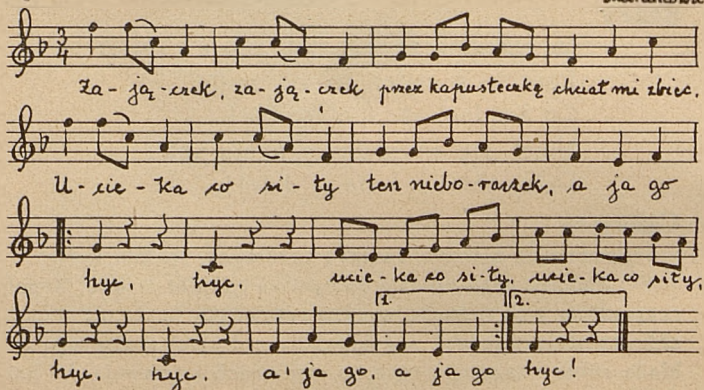 3
4
Za-ją-czek, za-ją-czek przez kapusteczkę chciał mi zbiec.
U-cie-ka co si-ły ten niebo-raszek, a ja go
hyc, hyc. ucie-ka co si-ły, ucie-ka co siły,
1. 2.
hyc, hyc. a ja go, a ja go hyc!